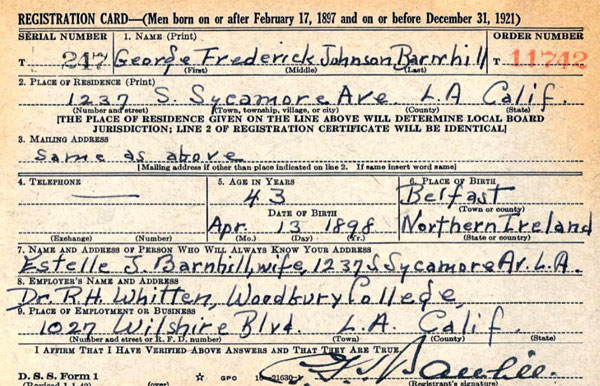 REGISTRATION CARD—(Men born on or after February 17, 1897 and on or before December 31, 1921)
SERIAL NUMBER 1. NAME (Print) ORDER NUMBER
T 247 George Frederick Johnson Barnhill T 11742
(First) (Middle) (Last)
2. PLACE OF RESIDENCE (Print)
1237 S. Sycamore Ave L.A Calif.
(Number and street) (Town, township, village, or city) (County) (State)
[THE PLACE OF RESIDENCE GIVEN ON THE LINE ABOVE WILL DETERMINE LOCAL BOARD
JURISDICTION; LINE 2 OF REGISTRATION CERTIFICATE WILL BE IDENTICAL]
3. MAILING ADDRESS
same as above
[Mailing address if other than place indicated on line 2. If same insert word same]
4. TELEPHONE 5. AGE IN YEARS 6. PLACE OF BIRTH
43 Belfast
DATE OF BIRTH (Town or county)
Apr. 13 1898 Northern Ireland
(Exchange) (Number) (Mo.) (Day) (Yr.) (State or country)
7. NAME AND ADDRESS OF PERSON WHO WILL ALWAYS KNOW YOUR ADDRESS
Estelle J. Barnhill, wife, 1237 S Sycamore Av. L.A.
8. EMPLOYER'S NAME AND ADDRESS
Dr. R.H. Whitten, Woodbury College,
9. PLACE OF EMPLOYMENT OR BUSINESS
1027 Wilshire Blvd. L.A. Calif.
(Number and street or R. F. D. number) (Town) (County) (State)
I AFFIRM THAT I HAVE VERIFIED ABOVE ANSWERS AND THAT THEY ARE TRUE.
D. S. S. Form 1 GPO 16—21630-1
(Revised 1-1-42) (Registrant's signature)